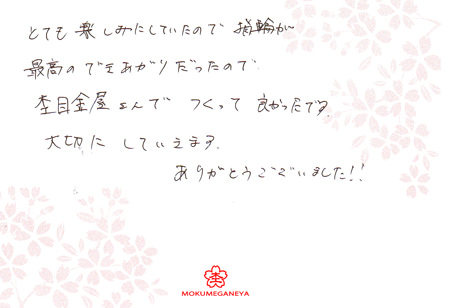 とても 楽しみにしていたので 指輪が
最高の できあがりだったので
杢目金屋さんで つくって 良かったです。
大切に していえます。
ありがとうございました!!
MOKUMEGANEYA